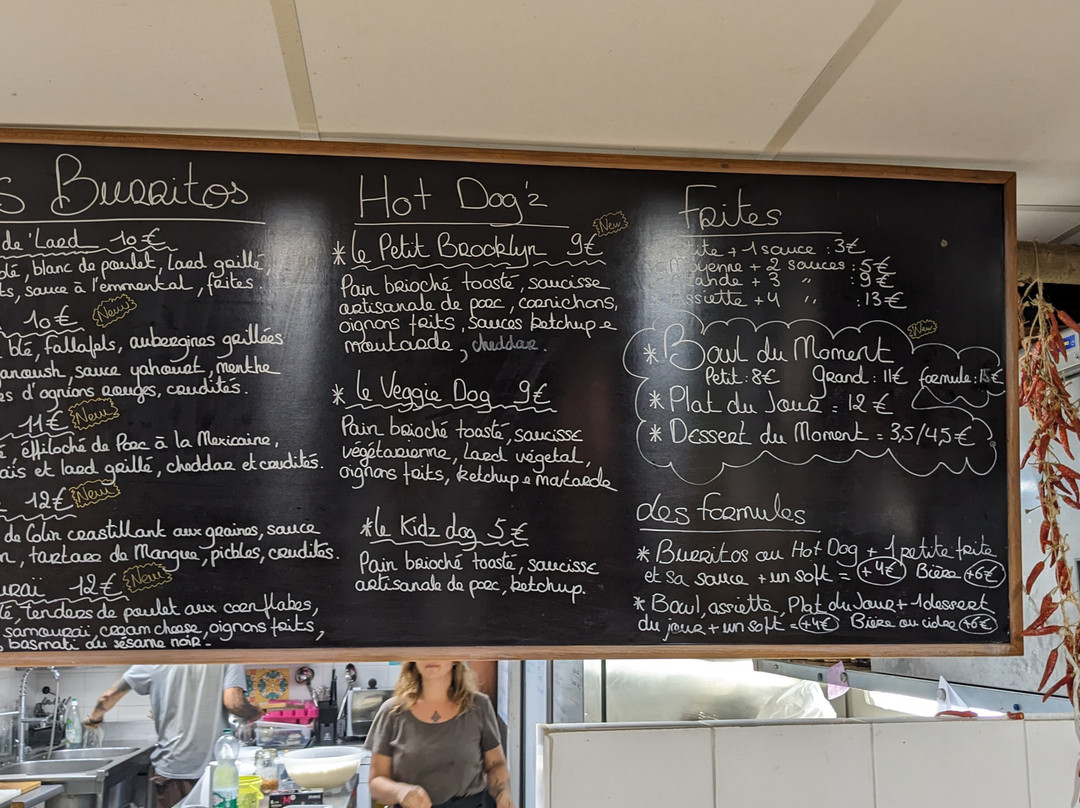 Burritos
de'Lard 10€
blé, blanc de poulet, lard grillé,
sauce à l'emmental, frites.
10€ New
blé, fallafels, aubergines grillées
sauce yahourt, menthe
d'oignons rouges, crudités.
11€ New
éffiloché de Porc à la Mexicaine,
et lard grillé, cheddar et crudités.
12€ New
de Colin croustillant aux graines, sauce
tartare de Mangue, pickles, crudités.
12€ New
tenders de poulet aux cornflakes,
samouraï, cream cheese, oignons frits,
basmati au sésame noir.
Hot Dog'z
New
* le Petit Brooklyn 9€
Pain brioché toasté, saucisse
artisanale de porc, cornichons,
oignons frits, sauces ketchup e
moutarde, cheddar.
* le Veggie Dog 9€
Pain brioché toasté, saucisse
végétarienne, lard végétal,
oignons frits, ketchup e moutarde
* le Kidz dog 5€
Pain brioché toasté, saucisse
artisanale de porc, ketchup.
Frites
+ 1 sauce : 3€
Moyenne + 2 sauces : 5€
+ 3 " : 9€
Assiette + 4 " : 13€
New
* Bowl du Moment
Petit : 8€ Grand : 11€ formule : 15€
* Plat du Jour = 12€
* Dessert du Moment = 3,5/4,5€
des formules
* Burritos ou Hot Dog + 1 petite frite
et sa sauce + un soft = +4€ Bière +6€
* Bowl, assiette, Plat du Jour + 1 dessert
du jour + un soft = +4€ Bière ou cidre +6€